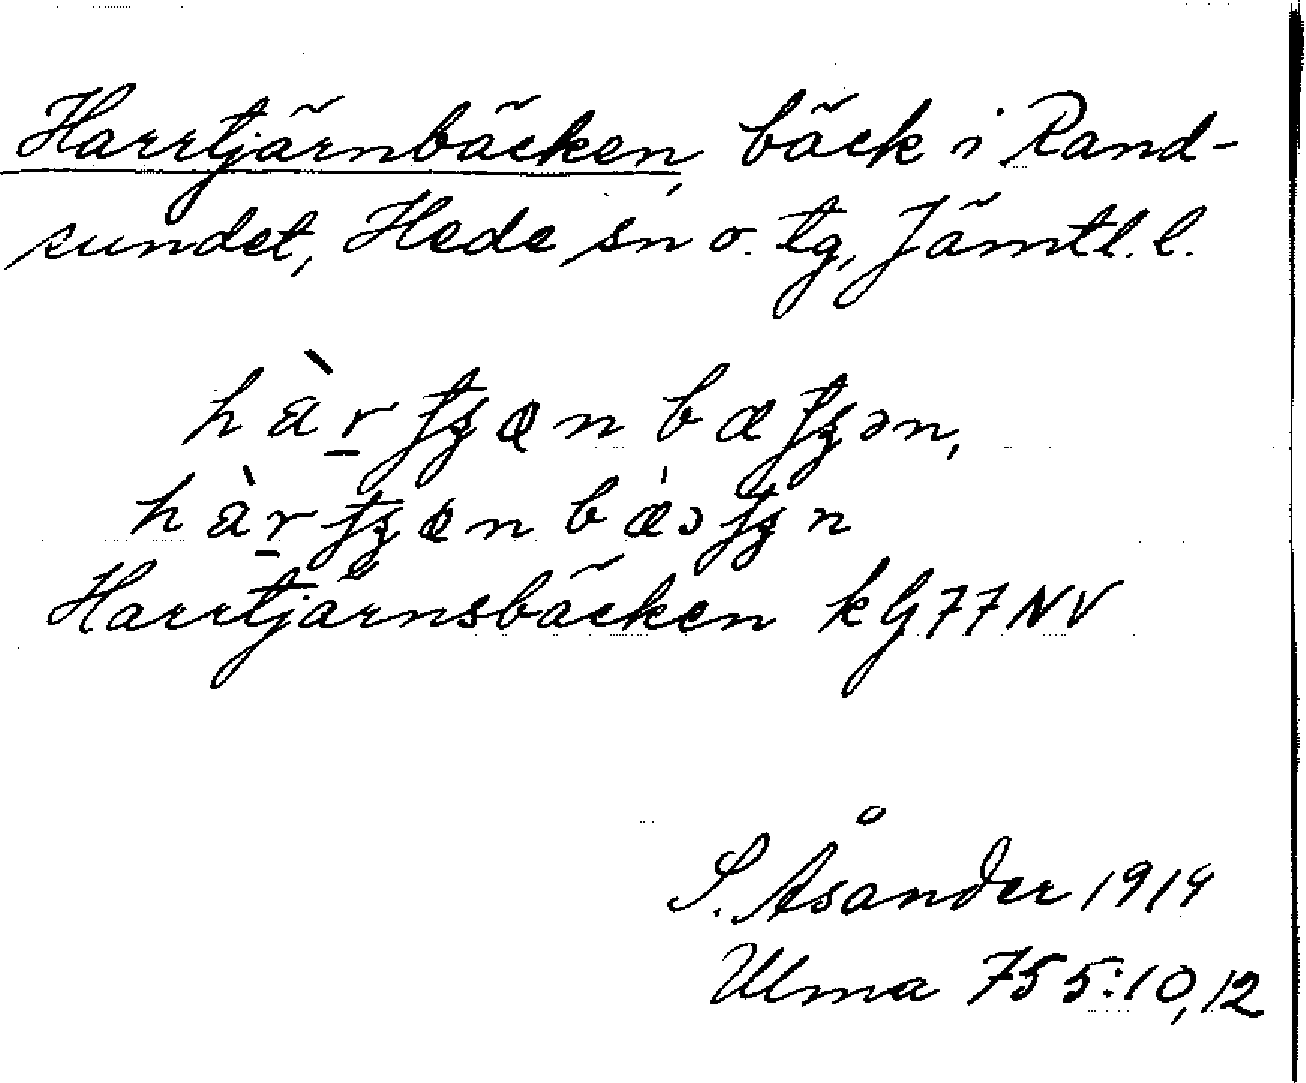 Harrtjärnbäcken, bäck i Rand-
sundet, Hede sn o. tg, Jämtl. l.
Harrtjärnsbäcken kG77NV
S. Åsander 1919
Ulma 755:10,12